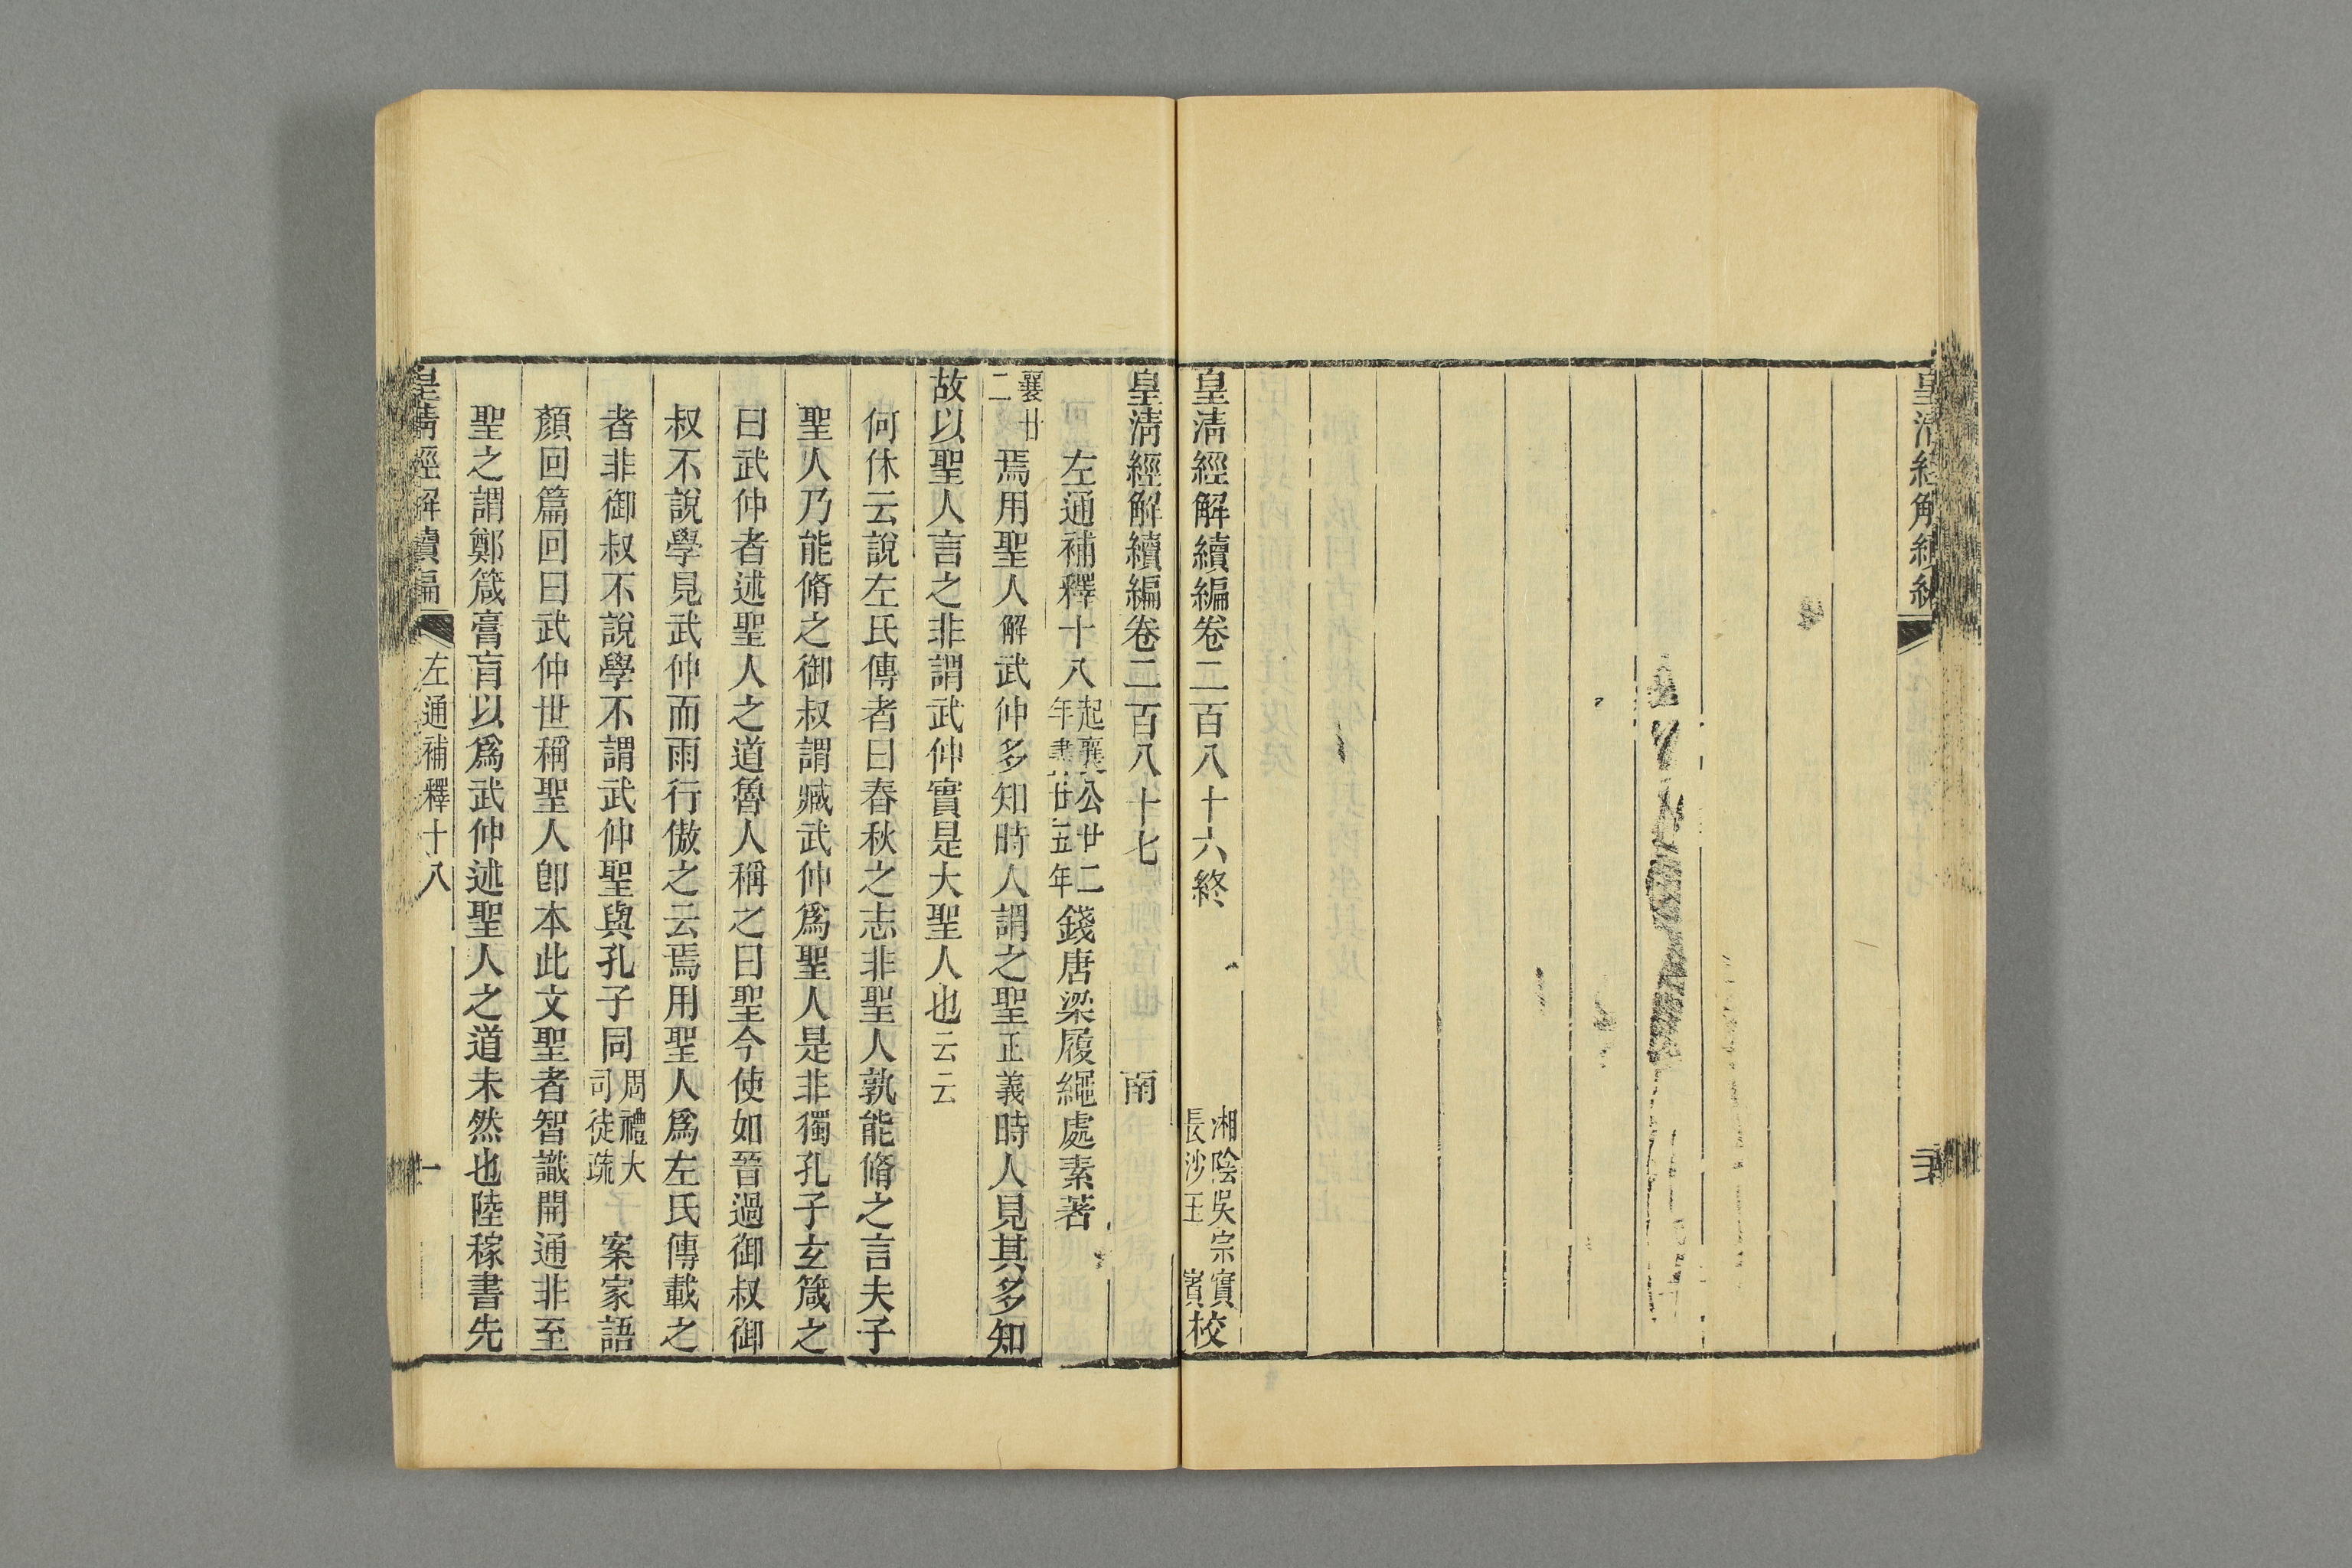 皇清經解續編
皇清經解續編卷二百八十六終
湘陰吳宗實
長沙王 賓校
皇清經解續編卷二百八十七 南
左通補釋十八起襄公廿二年盡廿五年錢唐梁履繩處素著
襄廿二焉用聖人解武仲多知時人謂之聖正義時人見其多知
故以聖人言之非謂武仲實是大聖人也云云
何休云說左氏傳者曰春秋之志非聖人孰能脩之言夫子
聖人乃能脩之御叔謂臧武仲爲聖人是非獨孔子玄箴之
曰武仲者述聖人之道魯人稱之曰聖今使如晉過御叔御
叔不說學見武仲而雨行傲之云焉用聖人爲左氏傳載之
者非御叔不說學不謂武仲聖與孔子同周禮大司徒疏 案家語
顏回篇回曰武仲世稱聖人卽本此文聖者智識開通非至
聖之謂鄭箴膏肓以爲武仲述聖人之道未然也陸稼書先
皇清經解續編 左通補釋十八 一